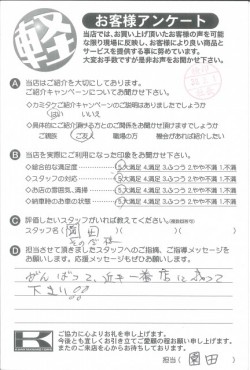 軽
お客様アンケート
当店では、お買い上げ頂いたお客様の声を可能
な限り現場に反映し、お客様により良い商品と
サービスを提供する事に努めています。
大変お手数ですが是非お声をお聞かせ下さい。
A 当店はご紹介を大切にしております。
ご紹介キャンペーンについてお聞かせ下さい。
◇カミタケご紹介キャンペーンのご説明はありましたでしょうか
はい いいえ
◇具体的にご紹介頂ける方とのご関係をお聞かせ頂けますでしょうか
ご親族 ご友人 職場の方 機会があれば紹介したい
B 当店を実際にご利用になった印象をお聞かせ下さい。
◇総合的な満足度 5.大満足 4.満足 3.ふつう 2.やや不満 1.不満
◇スタッフの対応 5.大満足 4.満足 3.ふつう 2.やや不満 1.不満
◇お店の雰囲気、清掃 5.大満足 4.満足 3.ふつう 2.やや不満 1.不満
◇納車時のお車の状態 5.大満足 4.満足 3.ふつう 2.やや不満 1.不満
C 評価したいスタッフがいれば教えてください。(複数回答可)
スタッフ名 ( 園田 ) ( ) ( )
D 担当させて頂きましたスタッフへのご指摘、ご指導メッセージを
お願いします。応援メッセージもぜひお願いします。
がんばって、近キ一番店になって
下さい!!
K
ご協力に心よりお礼を申し上げます。
今後とも宜しくお引き立てご愛顧の程お願い申し上げます。
またのご来店を心からお待ちしております。
担当 ( 園田 )